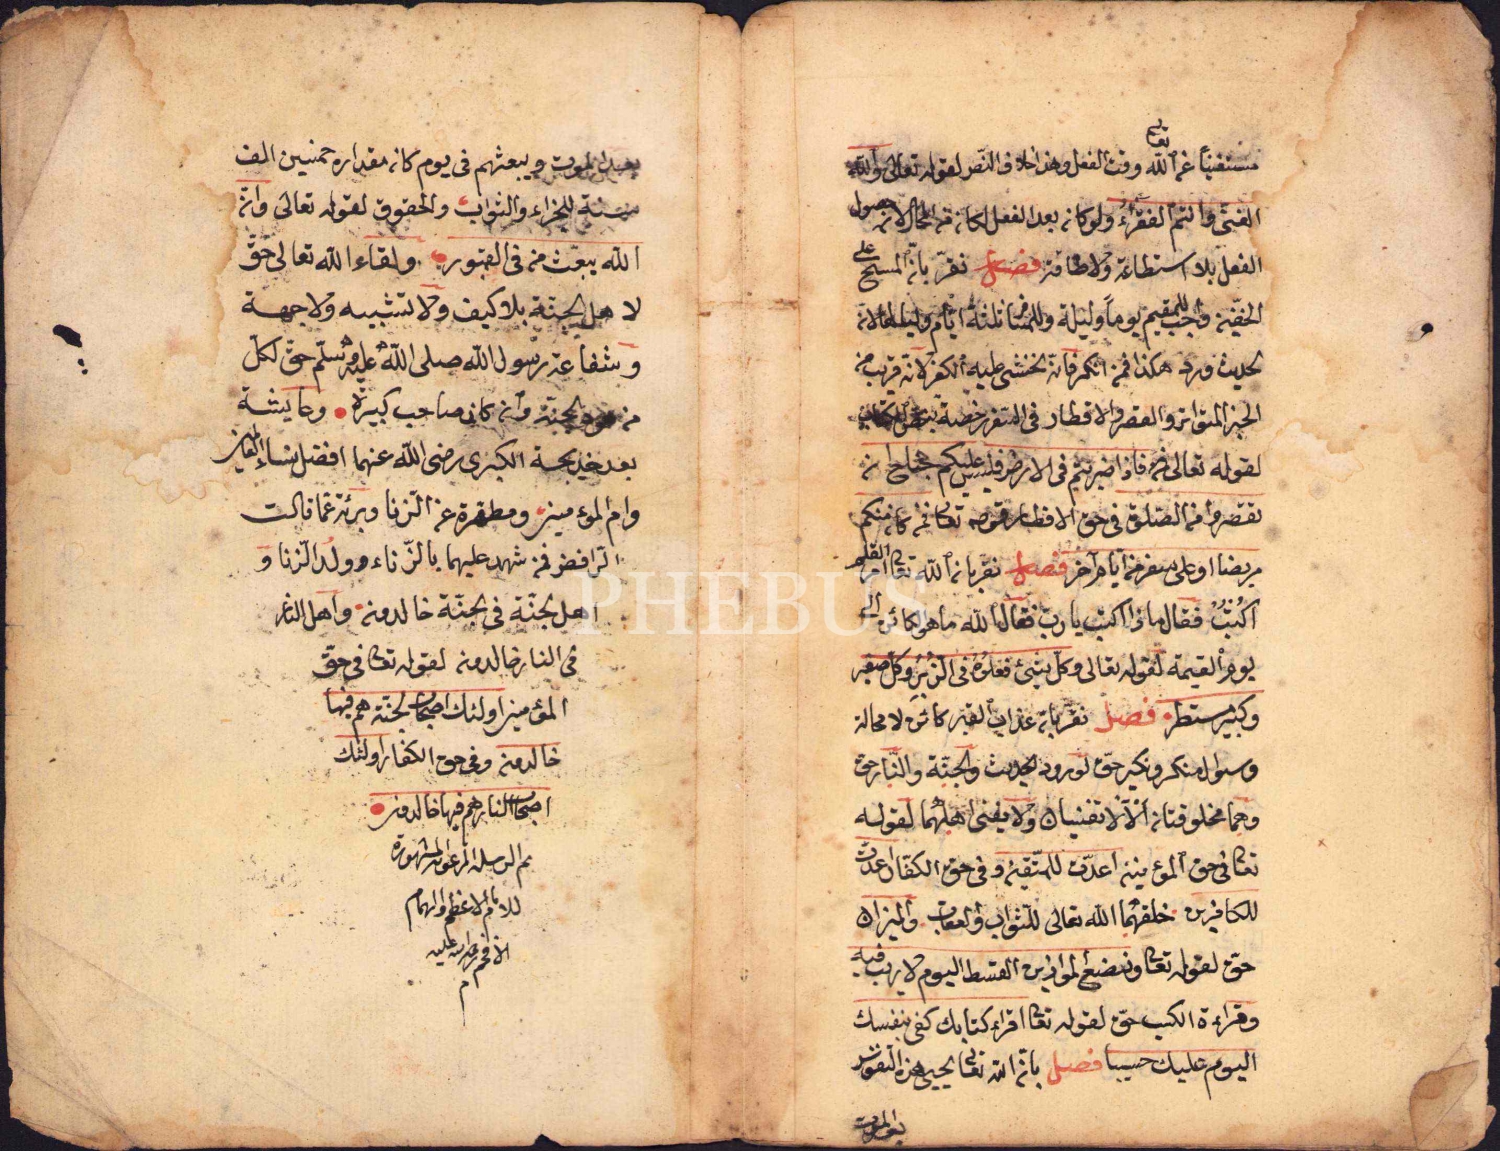 تعالى
مستغنيا عن الله وقت الفعل وهذا خلاف النص لقوله تعالى والله
الغني وانتم الفقراء ولو كان بعد الفعل لكان من المحال لانه حصول
الفعل بلا استطاعة ولا طاقة فصل نقر بان المسح على
الخفين واجب للمقيم يوما وليلة وللمسافر ثلثة ايام ولياليها لان
الحديث ورد هكذا فمن انكر فانه يخشى عليه الكفر لانه قريب من
الخبر المتواتر والقصر والافطار في السفر رخصة بنص الكتاب
لقوله تعالى فاذا ضربتم في الارض فليس عليكم جناح ان
تقصروا من الصلوة وفي حق الافطار قوله تعالى فمن كان منكم
مريضا او على سفر فعدة من ايام اخر فصل نقر بان الله تعالى امر القلم
اكتب فقال ماذا اكتب يا رب فقال الله ما هو كائن الى
يوم القيمة لقوله تعالى وكل شيئ فعلوه في الزبر وكل صغير
وكبير مستطر فصل نقر بان عذاب القبر كائن لا محالة
وسؤال منكر ونكير حق لورود الحديث والجنة والنار حق
وهما مخلوقتان الآن لا تفنيان ولا يفنى اهلهما لقوله
تعالى في حق المؤمنين اعدت للمتقين وفي حق الكفار اعدت
للكافرين خلقهما الله تعالى للثواب والعقاب والميزان
حق لقوله تعالى ونضع الموازين القسط اليوم لا ريب فيه
وقراءة الكتب حق لقوله تعالى اقراء كتابك كفى بنفسك
اليوم عليك حسيبا فصل بان الله تعالى يحيي هذه النفوس
بعد الموت
بعد الموت ويبعثهم في يوم كان مقداره خمسين الف
سنة للجزاء والثواب والحقوق لقوله تعالى وان
الله يبعث من في القبور ولقاء الله تعالى حق
لاهل الجنة بلا كيف ولا تشبيه ولا جهة
وشفاعة رسول الله صلى الله عليه وسلم حق لكل
من هو الجنة وان كان صاحب كبيرة وعايشة
بعد خديجة الكبرى رضي الله عنهما افضل نساء العالمين
وام المؤمنين ومطهرة عن الزنا وبرئة عما قالت
الرافض فمن شهد عليهما بالزناء وولد الزنا و
اهل الجنة في الجنة خالدون واهل النار
في النار خالدون لقوله تعالى في حق
المؤمنين اولئك اصحاب الجنة هم فيها
خالدون وفي حق الكفار اولئك
اصحاب النار هم فيها خالدون
تم الرسالة المرغوبة المشهورة
للامام الاعظم والهمام
الافخم رحمة الله عليه
م
PHEBUS